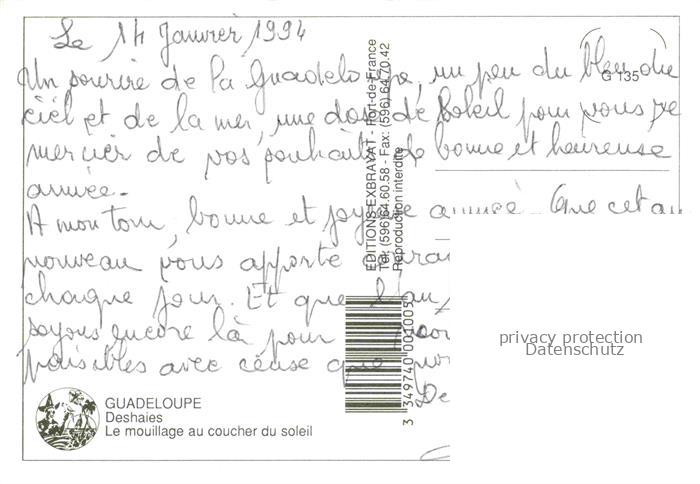 Le 14 Janvier 1994
Un sourire de la Guadeloupe, un peu du bleu du
ciel et de la mer, une dose de soleil pour vous re
mercier de vos souhaits de bonne et heureuse
année.
A mon tour, bonne et joyeuse année. Que cet an
nouveau vous apporte
chaque jour. Et que l'an
soyons encore là pour
paisibles avec ceuse que
De
G 135
EDITIONS EXBRAYAT - Fort-de-France
Tél. (596) 64.60.58 - Fax: (596) 64.70.42
Reproduction interdite
3 349740 001005
privacy protection
Datenschutz
GUADELOUPE
Deshaies
Le mouillage au coucher du soleil